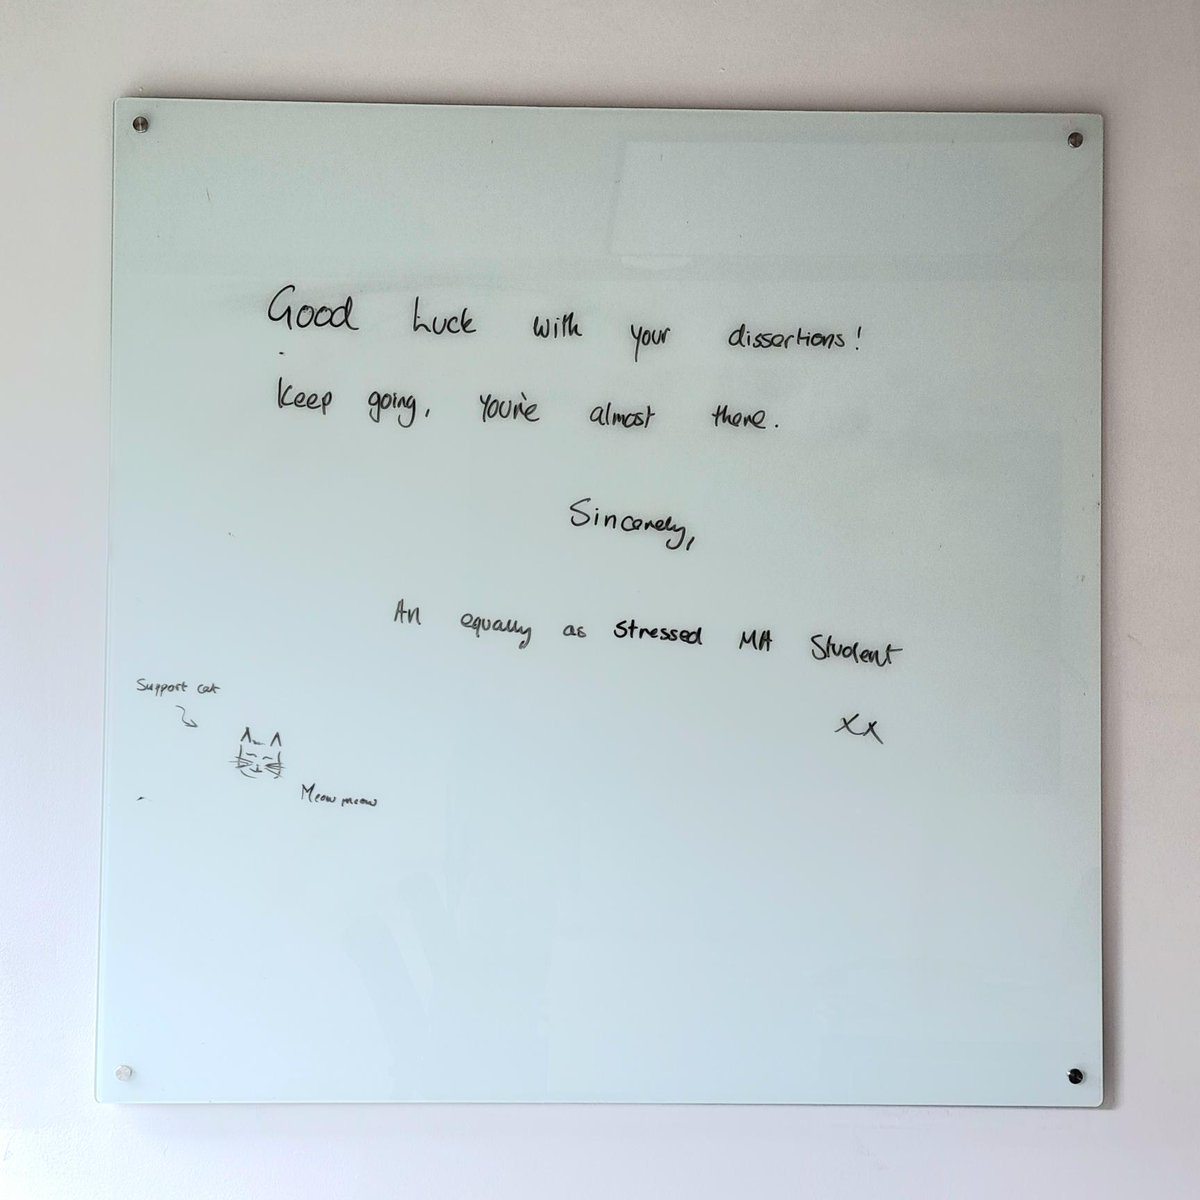 Good Luck with your dissertions!
Keep going, you're almost there.
Sincerely,
An equally as stressed MA Student
xx
Support cat
Meow meow